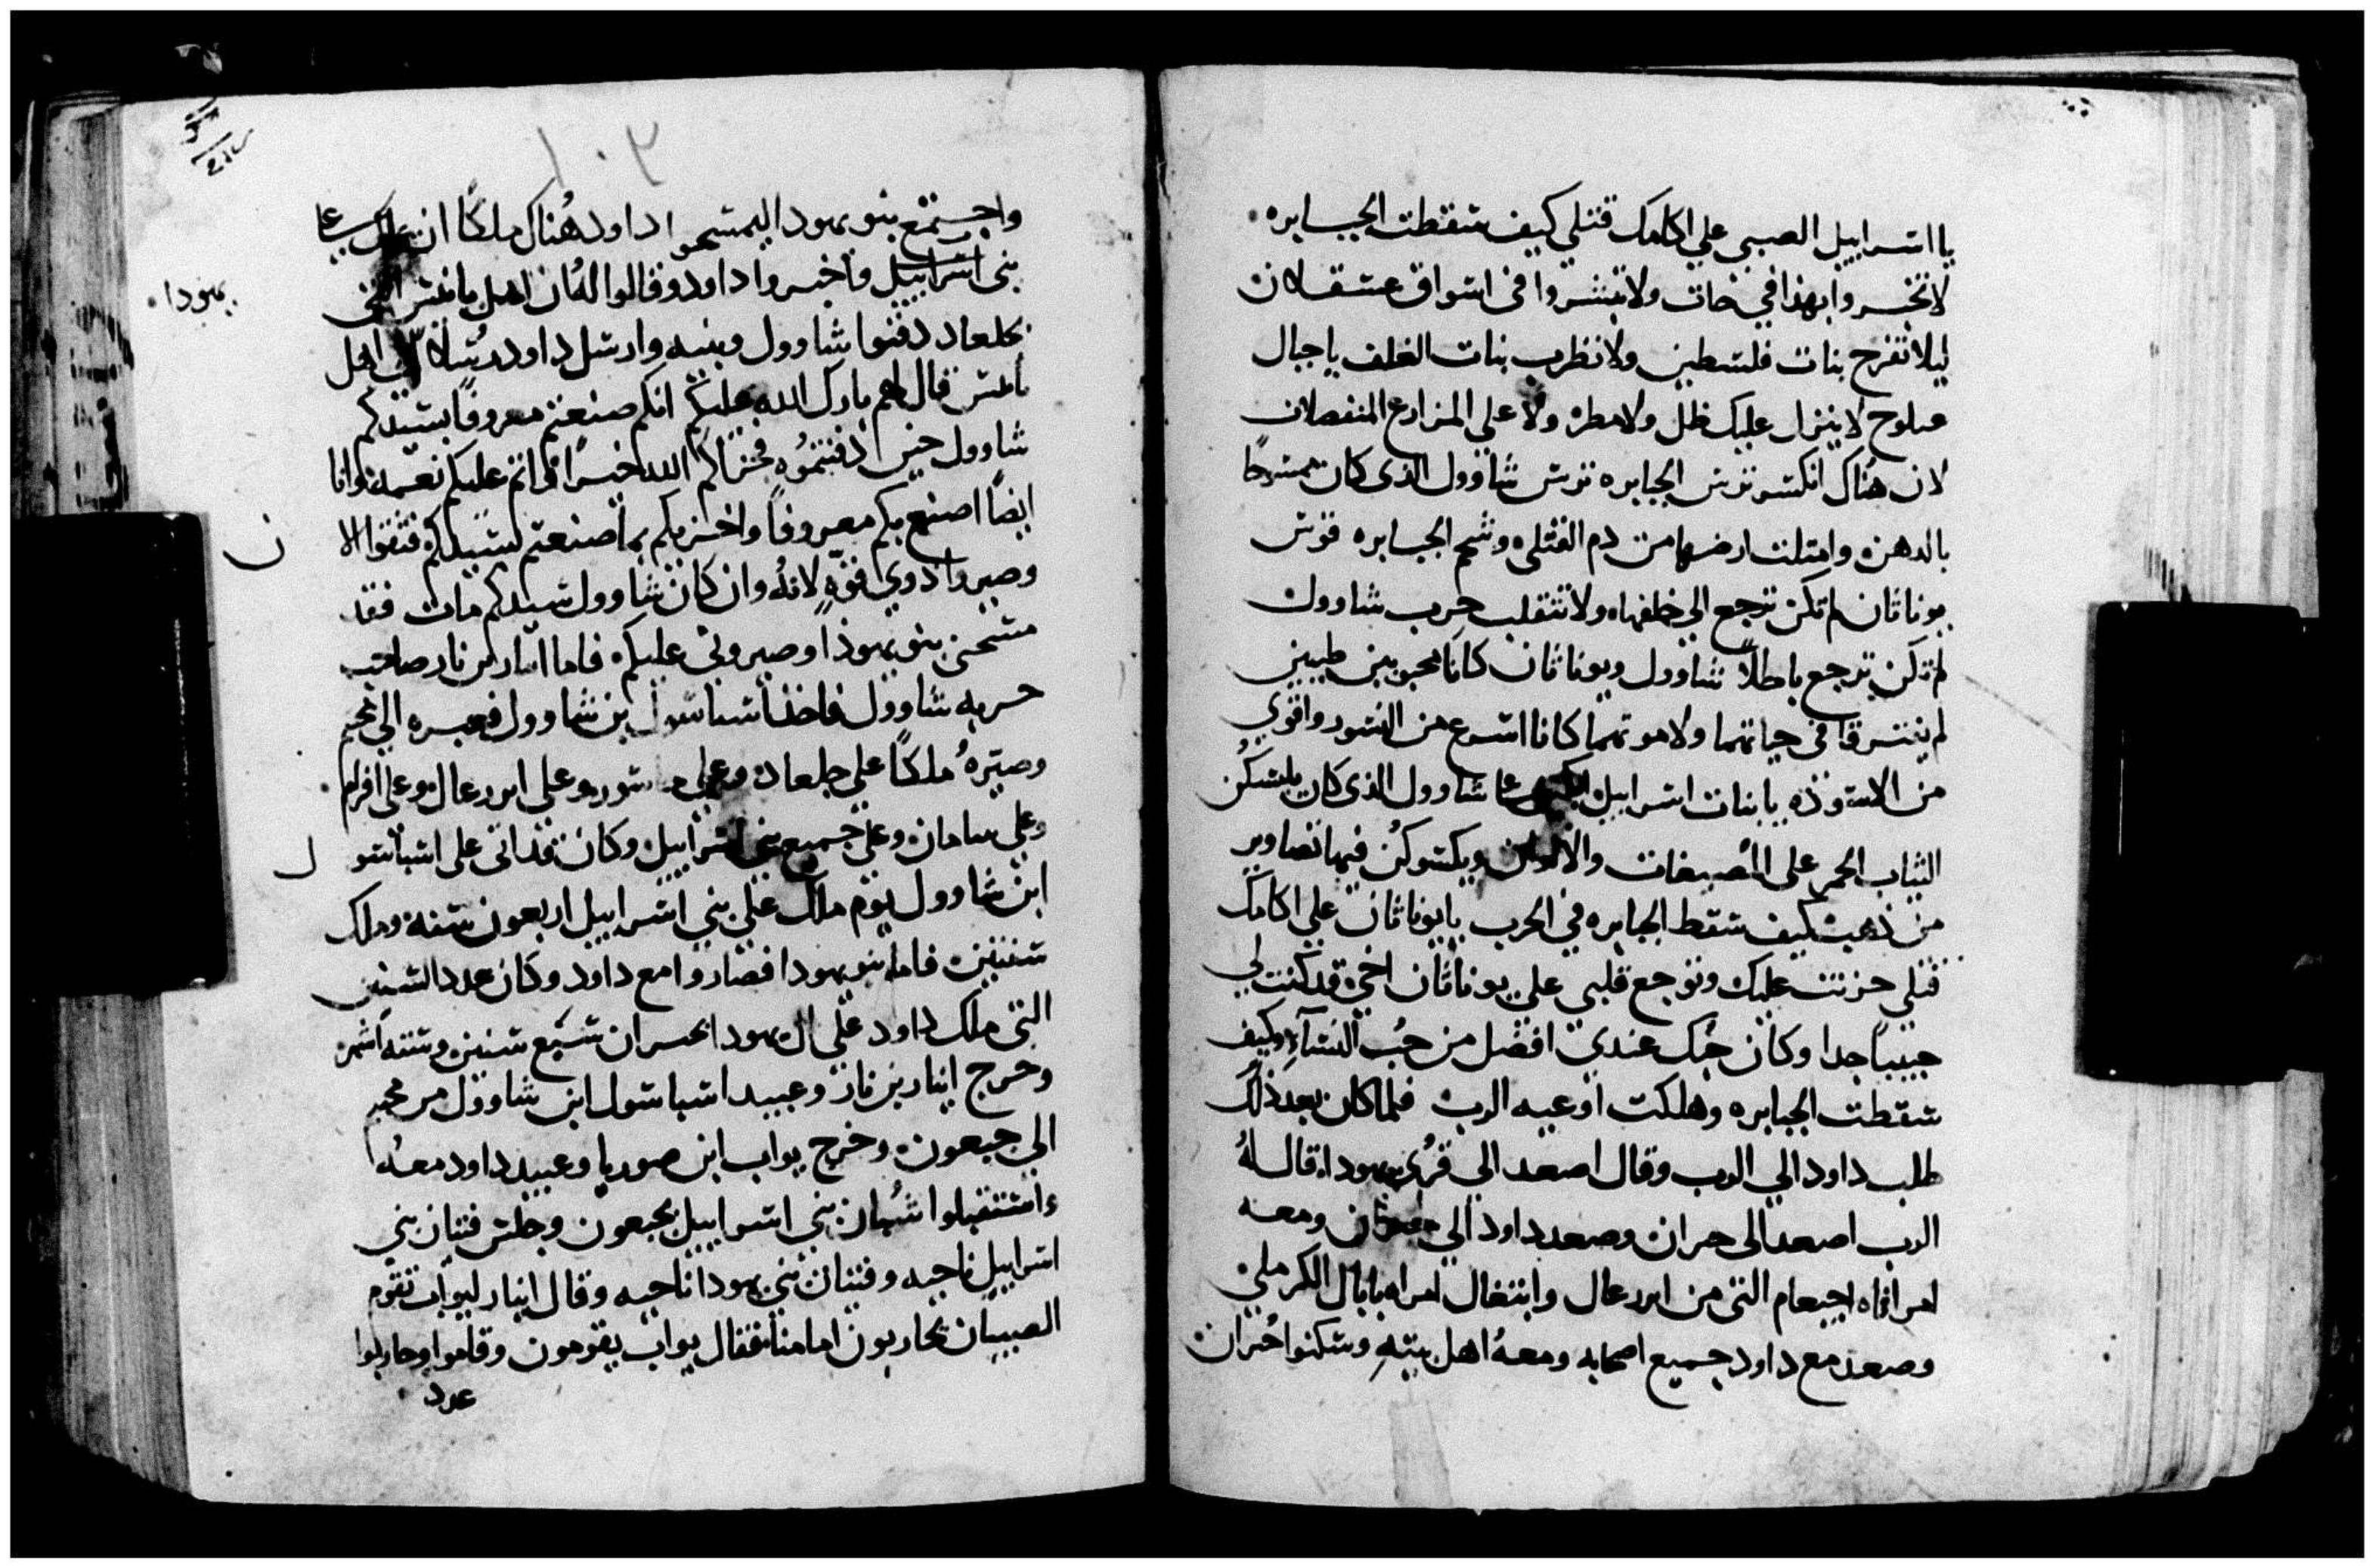 يا اسراييل الصبي علي اكامك قتلي كيف سقطت الجبابره
لا تخبروا بهذا في خات ولا تبشروا في اسواق عسقلان
ليلا تفرح بنات فلسطين ولا تطرب بنات الغلف يا جبال
صلوح لا ينزل عليك طل ولا مطر ولا علي المزارع المنفصلان
لان هناك انكسر ترس الجبابره ترس شاوول الذي كان ممسوحًا
بالدهن وامتلت ارضها من دم القتلي وشحم الجبابره قوس
يوناثان لم تكن ترجع الي خلفها ولا تنقلب حرب شاوول
لم تكن ترجع باطلًا شاوول ويوناثان كانا محبوبين طيبين
لم يفترقا في حياتهما ولا موتهما كانا اسرع من النسور واقوي
من الاسوده يا بنات اسراييل ابكين علي شاوول الذي كان يلبسكن
الثياب الحمر علي المصبغات والالوان ويكسوكن فيها تصاوير
من ذهب كيف سقط الجبابره في الحرب يا يوناثان علي اكامك
قتلي حزنت عليك وتوجع قلبي علي يوناثان اخي قد كنت لي
حبيبًا جدا وكان حبك عندي افضل من حُب النسآء وكيف
سقطت الجبابره وهلكت اوعيه الرب فلما كان بعد ذلك
طلب داود الي الرب وقال اصعد الي قُري يهودا قال لهُ
الرب اصعد الي حبران وصعد داود الي حبران ومعه
امراتاه اجيعام التي من ايزرعال وابتغال امراه نابال الكرملي
وصعد مع داود جميع اصحابه ومعهُ اهل بيته وسكنوا حُبران
واجتمع بنو يهودا ليمسحوا داود هُناك ملكًا ان يملك علي
يهودا
بني اسراييل واخبروا داود وقالوا لهُ ان اهل يابيس التي
بجلعاد دفنوا شاوول وبنيه وارسل داود رُسلًا الي اهل
يابيس قال لهم بارك الله عليكم انكم صنعتم معروفًا بسيدكم
شاوول حين دفنتموه فجزاكم الله خيرًا واتم عليكم نعمه وانا
ايضًا اصنع بكم معروفًا واجزيكم بما صنعتم بسيدكم فثقوا الا
ن
وصيروا ذوي قوّهٍ لانهُ وان كان شاوول سيدكم مات فقد
مسحني بنو يهوذا وصيروني عليكم فاما ابنار بن نار صاحب
حربه شاوول فاخذ اشباشول بن شاوول فعبره الي مخيم
وصيّرهُ ملكًا علي جلعاد وعلي سوره وعلي ايزرعال وعلي افرام
وعلي بنيامان وعلي جميع بني اسراييل وكان قد اتي علي اشباشو
ل
ابن شاوول يوم ملك علي بني اسراييل اربعون سنه وملك
سنتين فاما بنو يهودا فصاروا مع داود وكان عدد السنين
التي ملك داود علي ال يهودا بحبران سبع سنين وسته اشهر
وخرج ابنار بن نار وعبيد اشباشول ابن شاوول من مخيم
الي جبعون وخرج يواب ابن صوريا وعبيد داود معهُ
واستقبلوا شُبان بني اسراييل بجبعون وجلس فتيان بني
اسراييل ناحيه وفتيان بني يهودا ناحيه وقال ابنار ليواب تقوم
الصبيان يحاربون امامنا فقال يواب يقومون وقاموا وحاربوا
عدد